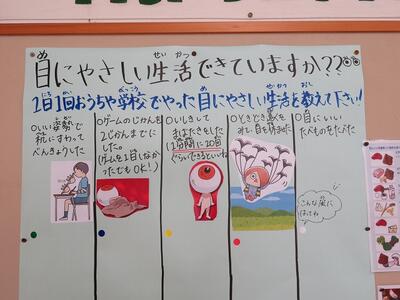 目にやさしい生活できていますか??
1日1回おうちや学校でやった目にやさしい生活を教えて下さい!
○いい姿勢で
机にすわって
べんきょうした
○ゲームのじかんを
2じかんまでに
した。
(ゲームを1日しなか
ったでもOK!)
○いしきして
まばたきをした
(1分間に20回
ぐらいできるといいね)
○ときどき遠くを
みて、目を休ませた
○目にいい
たべものをたべた
こんな風に
はってね